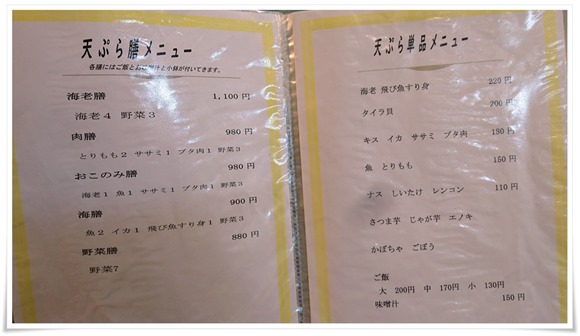 天ぷら膳メニュー
各膳にはご飯とお味噌汁と小鉢が付いてきます。
海老膳 1,100 円
海老4 野菜3
肉膳 980 円
とりもも2 ササミ1 ブタ肉1 野菜3
おこのみ膳 980 円
海老1 魚1 ササミ1 ブタ肉1 野菜3
海膳 900 円
魚2 イカ1 飛び魚すり身1 野菜3
野菜膳 880 円
野菜7
天ぷら単品メニュー
海老 飛び魚すり身 220 円
タイラ貝 200 円
キス イカ ササミ ブタ肉 180 円
魚 とりもも 150 円
ナス しいたけ レンコン 110 円
さつま芋 じゃが芋 エノキ
かぼちゃ ごぼう
ご飯
大 200円 中 170円 小 130円
味噌汁 150 円